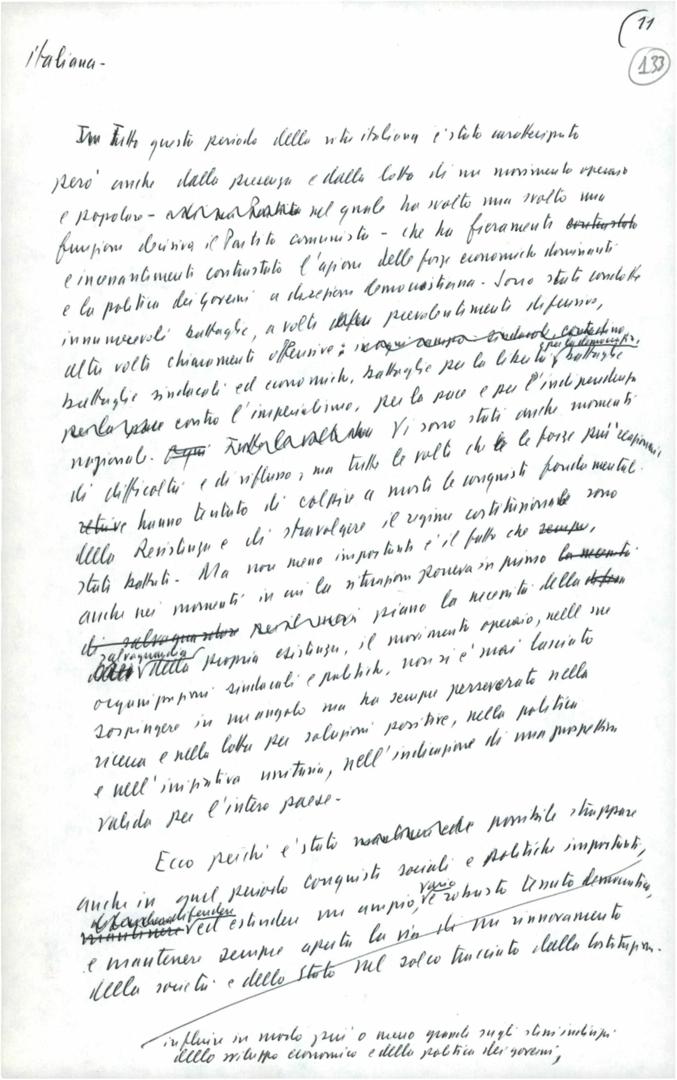 (11
133
italiana -
Tutto questo periodo della vita italiana è stato caratterizzato
però anche dalla presenza e dalla lotta di un movimento operaio
e popolare - nel quale ha svolto una svolto una
funzione decisiva il Partito comunista - che ha fieramente contrastato
e incessantemente contrastato l'azione delle forze economiche dominanti
e la politica dei governi a direzione democristiana. Sono state condotte
innumerevoli battaglie, a volte prevalentemente difensive,
altre volte chiaramente offensive:
battaglie sindacali ed economiche, battaglie per la libertà e per la democrazia, battaglie
per la pace contro l'imperialismo, per la pace e per l'indipendenza
nazionale. Vi sono stati anche momenti
di difficoltà e di riflusso, ma tutte le volte che le forze più reazionarie
hanno tentato di colpire a morte le conquiste fondamentali
della Resistenza e di stravolgere il regime costituzionale sono
state battute. Ma non meno importante è il fatto che sempre,
anche nei momenti in cui la situazione poneva in primo
di salvaguardare piano la necessità della
salvaguardia della propria esistenza, il movimento operaio, nelle sue
organizzazioni sindacali e politiche, non si è mai lasciato
sospingere in un angolo ma ha sempre perseverato nella
ricerca e nella lotta per soluzioni positive, nella politica
e nell'iniziativa unitaria, nell'indicazione di una prospettiva
valida per l'intero paese.
Ecco perché è stato possibile strappare
anche in quel periodo conquiste sociali e politiche importanti,
mantenere difendere ed estendere un ampio, vario e robusto tessuto democratico,
e mantenere sempre aperta la via di un rinnovamento
della società e dello Stato nel solco tracciato dalla Costituzione.
influire in modo più o meno grande sugli stessi indirizzi
dello sviluppo economico e della politica dei governi,